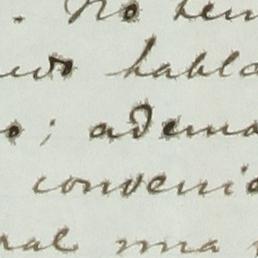 . No ten
habla
; adema
convenie
ral una